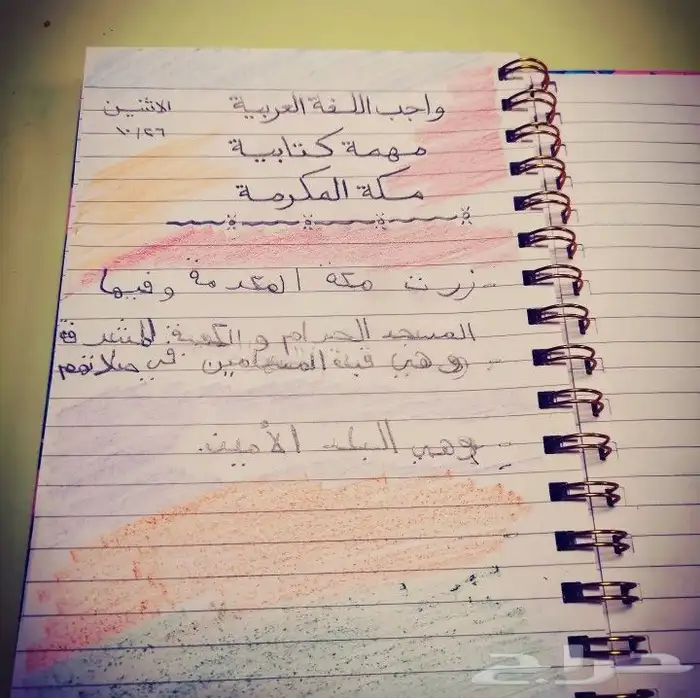 واجب اللغة العربية الاثنين
١٠/٢٦
مهمة كتابية
مكة المكرمة
- زرت مكة المكرمة وفيها
المسجد الحرام والكعبة المشرفة
- وهي قبلة المسلمين في صلاتهم
- وهي البلد الأمين.
حراج